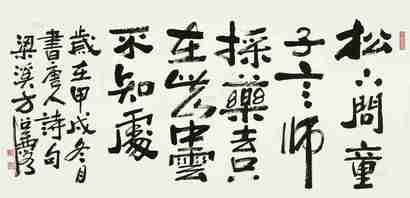 松下問童
子言師
採藥去只
在此中雲
不知處
歲在甲戌冬日
書唐人詩句
梁溪方